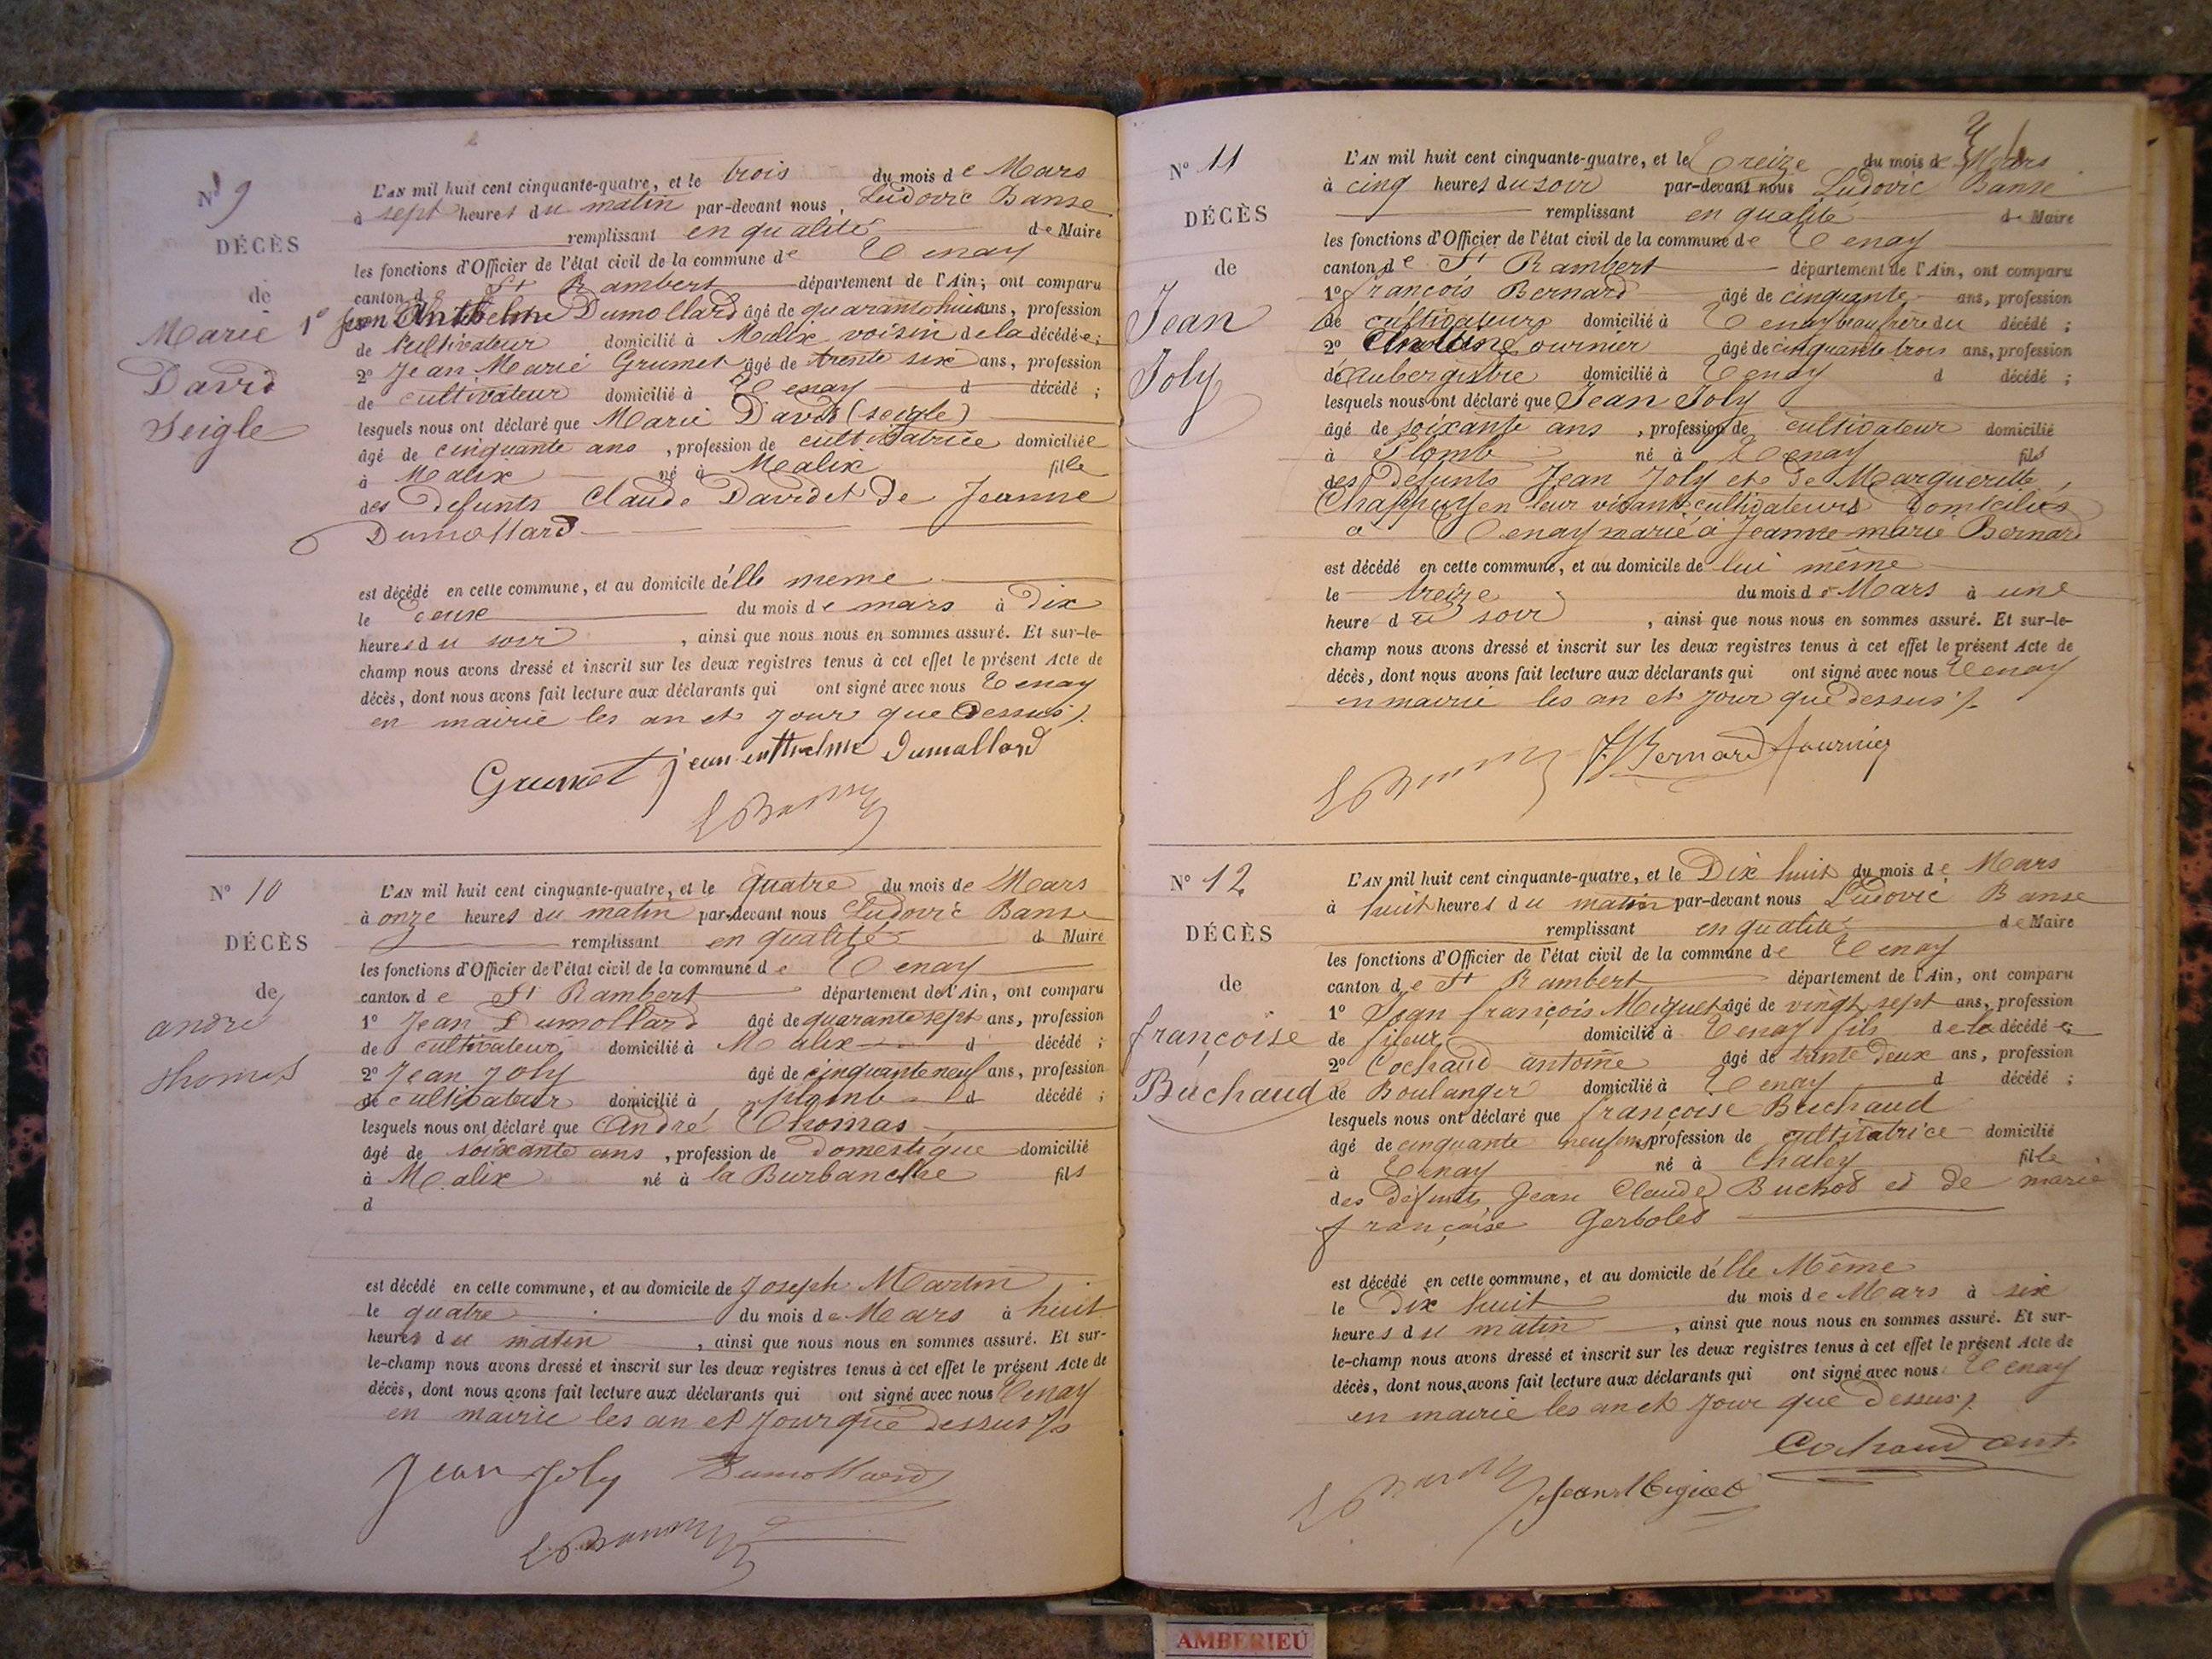 N° 9
DÉCÈS
de
Marie
David
Seigle
L'AN mil huit cent cinquante-quatre, et le trois du mois de Mars
à sept heures du matin par-devant nous Ludovic Banse
remplissant en qualité de Maire
les fonctions d'Officier de l'état civil de la commune de Tenay
canton de St Rambert département de l'Ain; ont comparu
1° Jean Anthelme Dumollard âgé de quarante huit ans, profession
de Cultivateur domicilié à Malix voisin de la décédée;
2° Jean Marie Grumet âgé de trente six ans, profession
de cultivateur domicilié à Tenay d décédé;
lesquels nous ont déclaré que Marie David (seigle)
âgé de cinquante ans, profession de cultivatrice domiciliée
à Malix né à Malix fille
des defunts Claude David et de Jeanne
Dumollard
est décédé en cette commune, et au domicile d'élle meme
le deux du mois de mars à Dix
heures du soir, ainsi que nous nous en sommes assuré. Et sur-le-
champ nous avons dressé et inscrit sur les deux registres tenus à cet effet le présent Acte de
décès, dont nous avons fait lecture aux déclarants qui ont signé avec nous Tenay
en mairie les an et jour que Dessus /.
Grumet jean anthelme Dumallard
N° 10
DÉCÈS
de
andré
thomas
L'AN mil huit cent cinquante-quatre, et le quatre du mois de Mars
à onze heures du matin par-devant nous Ludovic Banse
remplissant en qualité d Maire
les fonctions d'Officier de l'état civil de la commune de Tenay
canton de St Rambert département de l'Ain, ont comparu
1° Jean Dumollard âgé de quarante sept ans, profession
de cultivateur domicilié à Malix d décédé;
2° Jean Joly âgé de cinquante neuf ans, profession
de cultivateur domicilié à plomb d décédé;
lesquels nous ont déclaré que André Thomas
âgé de soixante ans, profession de Domestique domicilié
à Malix né à la Burbanche fils
d
est décédé en cette commune, et au domicile de Joseph Martin
le quatre du mois de Mars à huit
heures du matin, ainsi que nous nous en sommes assuré. Et sur-
le-champ nous avons dressé et inscrit sur les deux registres tenus à cet effet le présent Acte de
décès, dont nous avons fait lecture aux déclarants qui ont signé avec nous Tenay
en mairie les an et Jour que dessus /.
Jean Joly Dumollard
N° 11
DÉCÈS
de
Jean
Joly
L'AN mil huit cent cinquante-quatre, et le Treize du mois de Mars
à cinq heures du soir par-devant nous Ludovic Banse
remplissant en qualité de Maire
les fonctions d'Officier de l'état civil de la commune de Tenay
canton de St Rambert département de l'Ain, ont comparu
1° françois Bernard âgé de cinquante ans, profession
de cultivateur domicilié à Tenay beau frère du décédé;
2° Fournier âgé de cinquante trois ans, profession
de aubergiste domicilié à Tenay d décédé;
lesquels nous ont déclaré que Jean Joly
âgé de soixante ans, profession de cultivateur domicilié
à Plomb né à Tenay fils
des defunts Jean Joly et de Marguerite
Chappuy en leur vivant cultivateurs Domiciliés
a Tenay marié à Jeanne marie Bernard
est décédé en cette commune, et au domicile de lui même
le treize du mois de Mars à une
heure du soir, ainsi que nous nous en sommes assuré. Et sur-le-
champ nous avons dressé et inscrit sur les deux registres tenus à cet effet le présent Acte de
décès, dont nous avons fait lecture aux déclarants qui ont signé avec nous Tenay
en mairie les an et jour que dessus /.
Bernard fournier
N° 12
DÉCÈS
de
françoise
Buchaud
L'AN mil huit cent cinquante-quatre, et le Dix huit du mois de Mars
à huit heures du matin par-devant nous Ludovic Banse
remplissant en qualité de Maire
les fonctions d'Officier de l'état civil de la commune de Tenay
canton de St Rambert département de l'Ain, ont comparu
1° Jean françois Miguet âgé de vingt sept ans, profession
de fileur domicilié à Tenay fils de la décédée
2° Cochaud antoine âgé de trente Deux ans, profession
de Boulanger domicilié à Tenay d décédé;
lesquels nous ont déclaré que françoise Buchaud
âgé de cinquante neuf ans, profession de cultivatrice domicilié
à Tenay né à Chaley fille
des Défunts Jean Claude Buchod et de marie
françoise Gerboled
est décédé en cette commune, et au domicile d'élle Même
le Dix huit du mois de Mars à six
heures du matin, ainsi que nous nous en sommes assuré. Et sur-
le-champ nous avons dressé et inscrit sur les deux registres tenus à cet effet le présent Acte de
décès, dont nous avons fait lecture aux déclarants qui ont signé avec nous Tenay
en mairie les an et Jour que Dessus /.
Cochaud ant
Jean Miguet
AMBERIEU